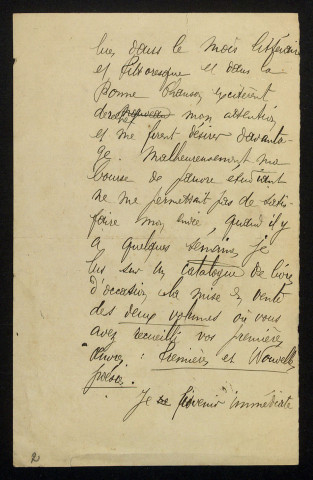 lues dans le Mois littéraire
et Pittoresque et dans la
Bonne Chanson excitèrent
de nouveau mon attention
et me firent désirer davanta-
ge. Malheureusement ma
bourse de pauvre étudiant
ne me permettait pas de satis-
faire mon envie, quand il y
a quelques semaines je
lus sur un catalogue de livres
d'occasion la mise en vente
des deux volumes où vous
avez recueilli vos premières
œuvres : Premières et Nouvelles
poésies.
Je fis venir immédiate
2